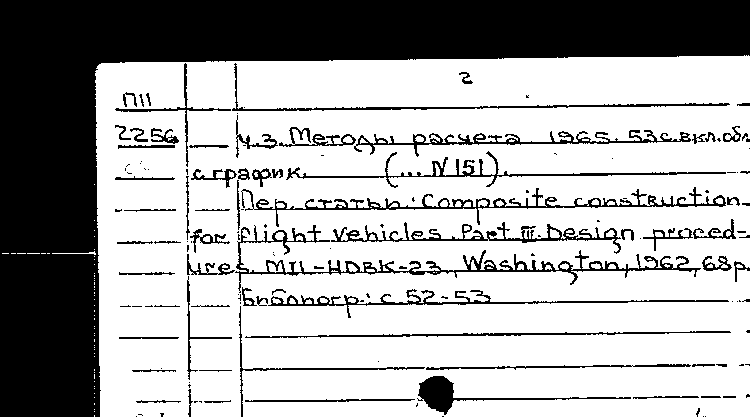 2
П11
2256 Ч.3. Методы расчета 1965. 53 с. вкл. обл.
с график. (... N 151).
Пер. статьи: Composite construction
for flight vehicles. Part III. Design proced-
ures. MIL-HDBK-23, Washington, 1962, 68 p.
Библиогр.: с. 52-53